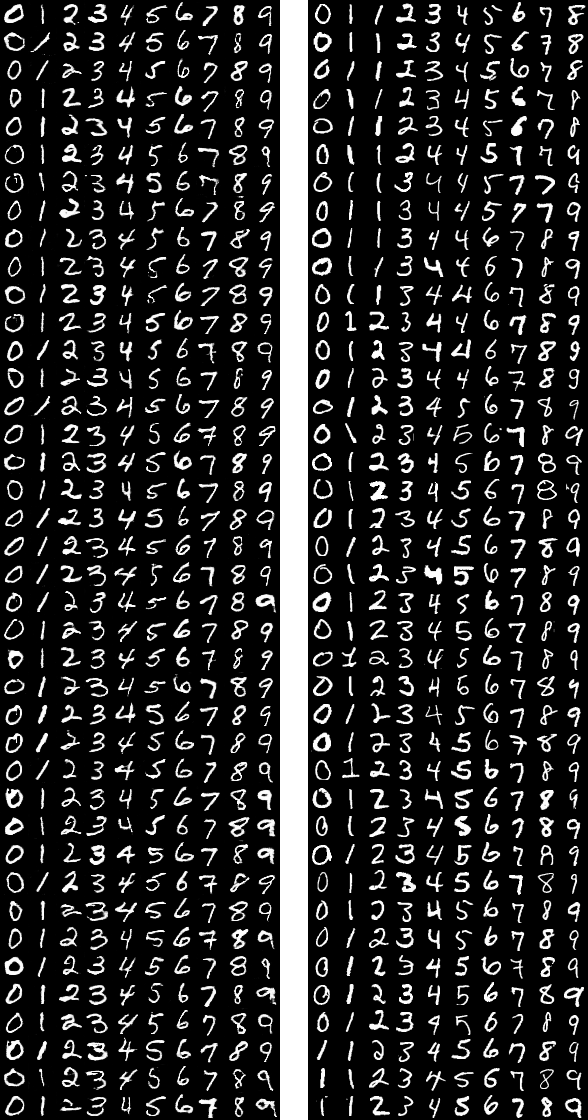 0 1 2 3 4 5 6 7 8 9
0 1 2 3 4 5 6 7 8 9
0 1 2 3 4 5 6 7 8 9
0 1 2 3 4 5 6 7 8 9
0 1 2 3 4 5 6 7 8 9
0 1 2 3 4 5 6 7 8 9
0 1 2 3 4 5 6 7 8 9
0 1 2 3 4 5 6 7 8 9
0 1 2 3 4 5 6 7 8 9
0 1 2 3 4 5 6 7 8 9
0 1 2 3 4 5 6 7 8 9
0 1 2 3 4 5 6 7 8 9
0 1 2 3 4 5 6 7 8 9
0 1 2 3 4 5 6 7 8 9
0 1 2 3 4 5 6 7 8 9
0 1 2 3 4 5 6 7 8 9
0 1 2 3 4 5 6 7 8 9
0 1 2 3 4 5 6 7 8 9
0 1 2 3 4 5 6 7 8 9
0 1 2 3 4 5 6 7 8 9
0 1 2 3 4 5 6 7 8 9
0 1 2 3 4 5 6 7 8 9
0 1 2 3 4 5 6 7 8 9
0 1 2 3 4 5 6 7 8 9
0 1 2 3 4 5 6 7 8 9
0 1 2 3 4 5 6 7 8 9
0 1 2 3 4 5 6 7 8 9
0 1 2 3 4 5 6 7 8 9
0 1 2 3 4 5 6 7 8 9
0 1 2 3 4 5 6 7 8 9
0 1 2 3 4 5 6 7 8 9
0 1 2 3 4 5 6 7 8 9
0 1 2 3 4 5 6 7 8 9
0 1 2 3 4 5 6 7 8 9
0 1 2 3 4 5 6 7 8 9
0 1 2 3 4 5 6 7 8 9
0 1 2 3 4 5 6 7 8 9
0 1 2 3 4 5 6 7 8 9
0 1 2 3 4 5 6 7 8 9
0 1 2 3 4 5 6 7 8 9
0 1 1 2 3 4 5 6 7 8
0 1 1 2 3 4 5 6 7 8
0 1 1 2 3 4 5 6 7 8
0 1 1 2 3 4 5 6 7 8
0 1 1 2 3 4 5 6 7 8
0 1 1 2 4 4 5 7 7 9
0 1 1 3 4 4 5 7 7 9
0 1 1 3 4 4 5 7 7 9
0 1 1 3 4 4 6 7 8 9
0 1 1 3 4 4 6 7 8 9
0 1 1 3 4 4 6 7 8 9
0 1 2 3 4 4 6 7 8 9
0 1 2 3 4 4 6 7 8 9
0 1 2 3 4 4 6 7 8 9
0 1 2 3 4 5 6 7 8 9
0 1 2 3 4 5 6 7 8 9
0 1 2 3 4 5 6 7 8 9
0 1 2 3 4 5 6 7 8 9
0 1 2 3 4 5 6 7 8 9
0 1 2 3 4 5 6 7 8 9
0 1 2 3 4 5 6 7 8 9
0 1 2 3 4 5 6 7 8 9
0 1 2 3 4 5 6 7 8 9
0 1 2 3 4 5 6 7 8 9
0 1 2 3 4 6 6 7 8 9
0 1 2 3 4 5 6 7 8 9
0 1 2 3 4 5 6 7 8 9
0 1 2 3 4 5 6 7 8 9
0 1 2 3 4 5 6 7 8 9
0 1 2 3 4 5 6 7 8 9
0 1 2 3 4 5 6 7 8 9
0 1 2 3 4 5 6 7 8 9
0 1 2 3 4 5 6 7 8 9
0 1 2 3 4 5 6 7 8 9
0 1 2 3 4 5 6 7 8 9
0 1 2 3 4 5 6 7 8 9
0 1 2 3 4 5 6 7 8 9
1 1 2 3 4 5 6 7 8 9
1 1 2 3 4 5 6 7 8 9
1 1 2 3 4 5 6 7 8